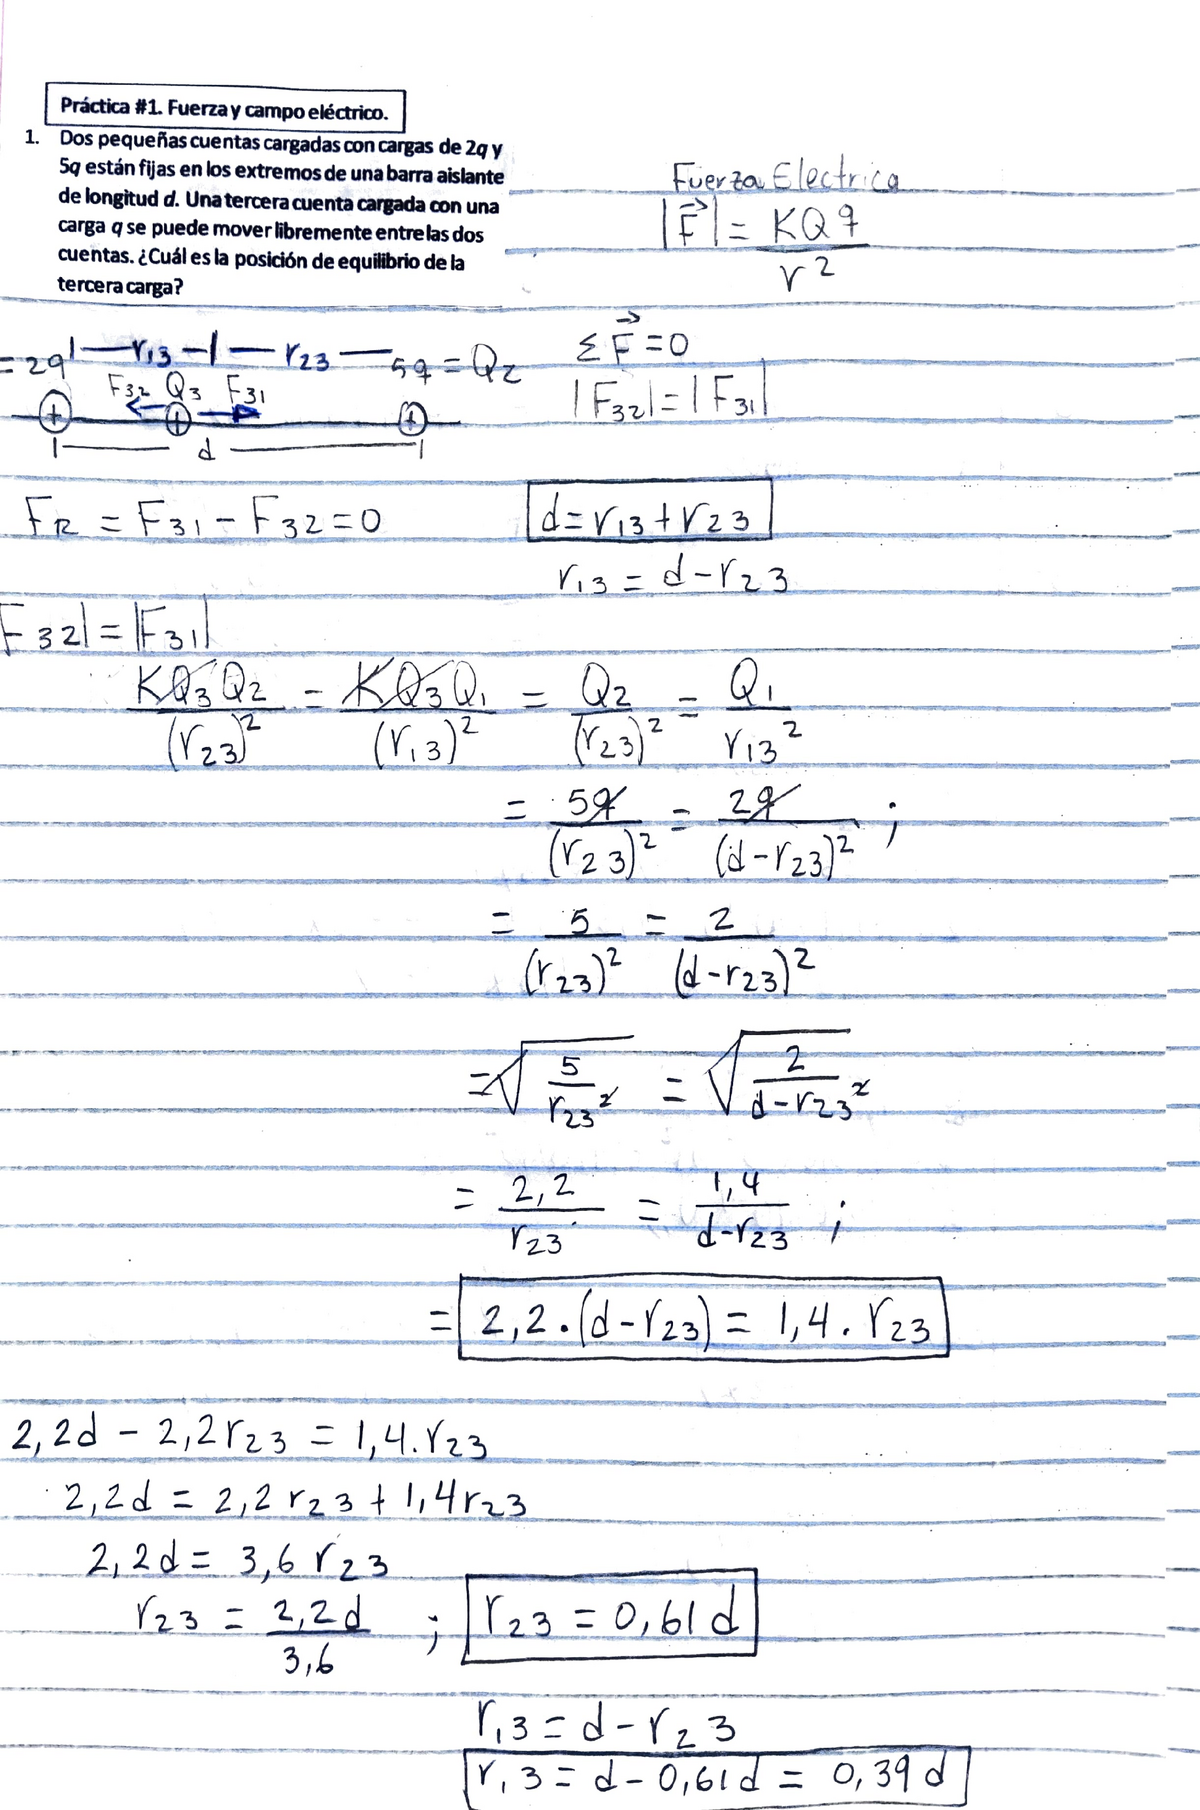 Práctica #1. Fuerza y campo eléctrico.
1. Dos pequeñas cuentas cargadas con cargas de 2q y
5q están fijas en los extremos de una barra aislante
de longitud d. Una tercera cuenta cargada con una
carga q se puede mover libremente entre las dos
cuentas. ¿Cuál es la posición de equilibrio de la
tercera carga?
Fuerza Electrica
|F⃗| = KQq / r²
= 2q |—r13—|—r23— 5q = Q2
F32 Q3 F31
+ + +
|— d —|
ΣF⃗ = 0
|F32| = |F31|
FR = F31 - F32 = 0
d = r13 + r23
r13 = d - r23
F32| = |F31|
KQ3Q2 / (r23)² = KQ3Q1 / (r13)² = Q2 / (r23)² = Q1 / r13²
= 5q / (r23)² = 2q / (d - r23)² ;
= 5 / (r23)² = 2 / (d - r23)²
= √(5 / r23²) = √(2 / d - r23²)
= 2,2 / r23 = 1,4 / d - r23 ;
= 2,2 . (d - r23) = 1,4 . r23
2,2d - 2,2r23 = 1,4 . r23
2,2d = 2,2r23 + 1,4r23
2,2d = 3,6 r23
r23 = 2,2d / 3,6 ; r23 = 0,61 d
r13 = d - r23
r13 = d - 0,61d = 0,39 d